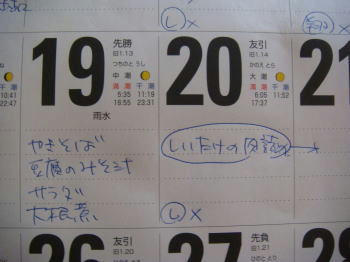 19
先勝
旧1.13
つちのと うし
中潮
満潮 干潮
5:35 11:19
16:55 23:31
雨水
やきそば
豆腐のみそ汁
サラダ
大根煮
20
友引
旧1.14
かのえ とら
大潮
満潮 干潮
6:05 11:52
17:37
しいたけの肉詰
し ×
21
26
友引
旧1.20
27
先負
旧1.21